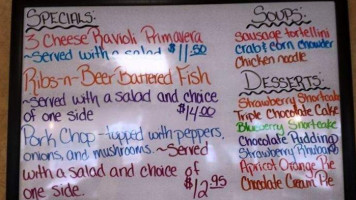 SPECIALS:
3 Cheese Ravioli Primavera
~served with a salad $11.50
Ribs-n-Beer Battered Fish
~served with a salad and choice
of one side $14.00
Pork Chop - topped with peppers,
onions, and mushrooms. ~Served
with a salad and choice of
one side. $12.95
SOUPS:
sausage tortellini
crab & corn chowder
chicken noodle
DESSERTS:
Strawberry Shortcake
Triple Chocolate Cake
Blueberry Shortcake
Chocolate Pudding
Strawberry Rhubarb
Apricot Orange Pie
Chocolate Cream Pie